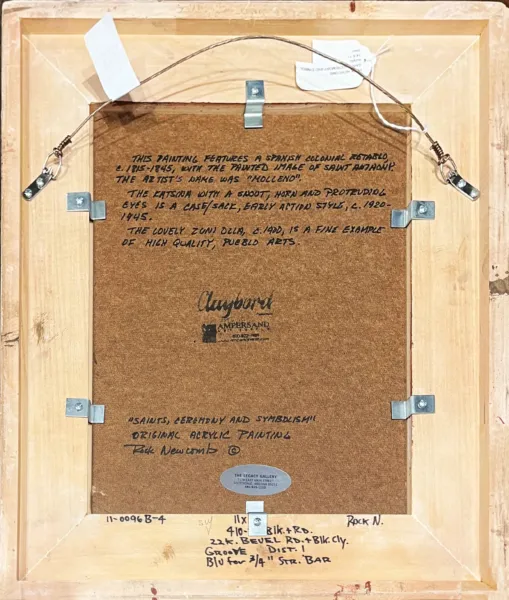 THIS PAINTING FEATURES A SPANISH COLONIAL RETABLO,
C. 1815-1845, WITH THE PAINTED IMAGE OF SAINT ANTHONY.
THE ARTIST'S NAME WAS "MOLLENO".
THE KATSINA WITH A SNOUT, HORN AND PROTRUDING
EYES IS A CASE/SACK, EARLY ACTION STYLE, C. 1920-
1945.
THE LOVELY ZUNI OLLA, C. 1900, IS A FINE EXAMPLE
OF HIGH QUALITY, PUEBLO ARTS.
Claybord
AMPERSAND
"SAINTS, CEREMONY AND SYMBOLISM"
ORIGINAL ACRYLIC PAINTING
Rock Newcomb ©
THE LEGACY GALLERY
11-0096B-4
11x
ROCK N.
410- Blk.+RD.
22K. BEVEL RD.+Blk. Cly.
GROOVE DIST. 1
Blu for 3/4" STR. BAR